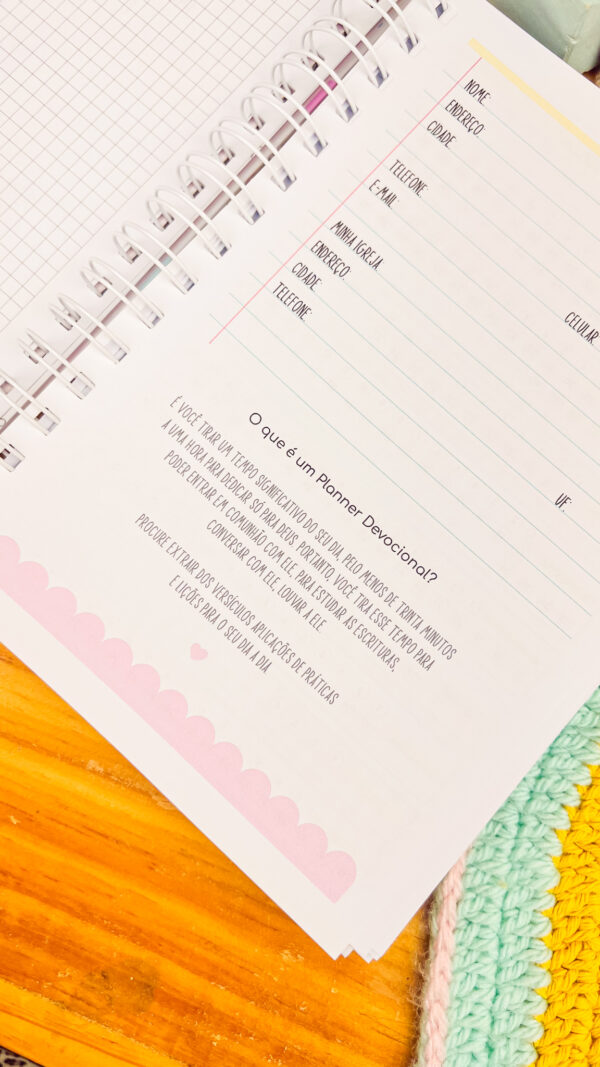 NOME:
ENDEREÇO:
CIDADE:
UF:
TELEFONE:
CELULAR:
E-MAIL:
MINHA IGREJA:
ENDEREÇO:
CIDADE:
UF:
TELEFONE:
O que é um Planner Devocional?
É VOCÊ TIRAR UM TEMPO SIGNIFICATIVO DO SEU DIA, PELO MENOS DE TRINTA MINUTOS
A UMA HORA PARA DEDICAR SÓ PARA DEUS. PORTANTO, VOCÊ TIRA ESSE TEMPO PARA
PODER ENTRAR EM COMUNHÃO COM ELE, PARA ESTUDAR AS ESCRITURAS,
CONVERSAR COM ELE, LOUVAR A ELE.
PROCURE EXTRAIR DOS VERSÍCULOS APLICAÇÕES DE PRÁTICAS
E LIÇÕES PARA O SEU DIA A DIA